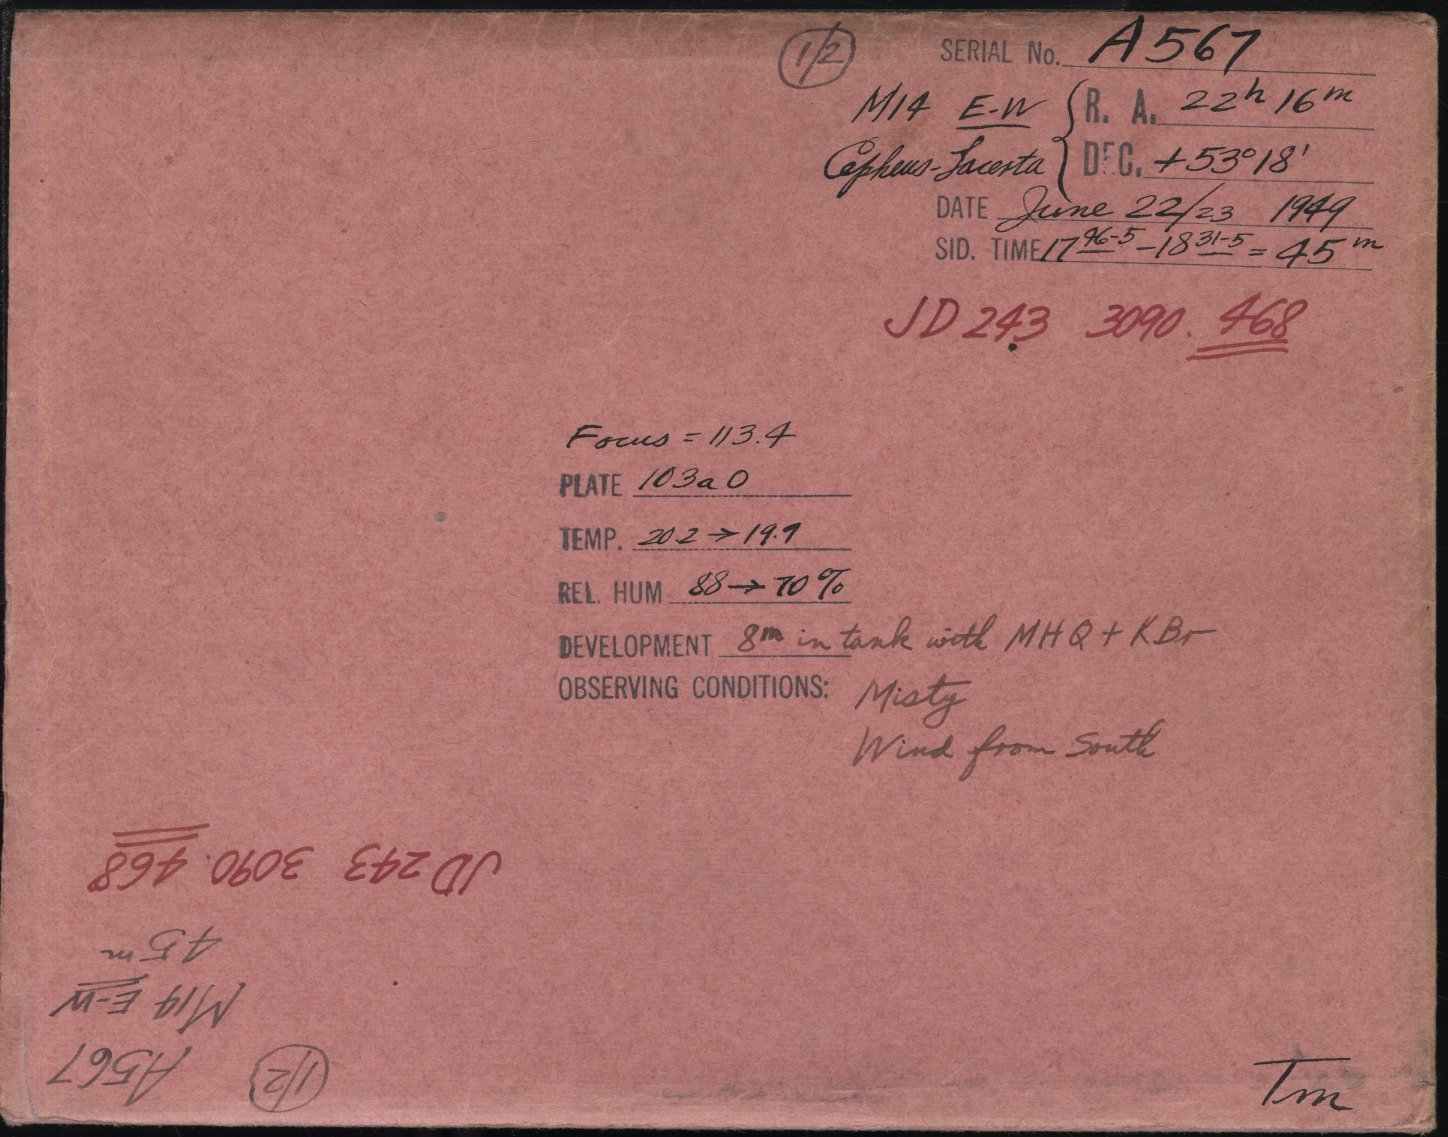 1/2
SERIAL No. A567
M14 E-W { R. A. 22h 16m
Cepheus-Lacerta DEC. +53° 18'
DATE June 22/23 1949
SID. TIME 17 46-5 - 18 31-5 = 45m
JD 243 3090.468
Focus = 113.4
PLATE 103a O
TEMP. 20.2 → 19.9
REL. HUM 88 → 70%
DEVELOPMENT 8m in tank with MHQ + KBr
OBSERVING CONDITIONS: Misty
Wind from South
JD 243 3090.468
45m
M14 E-W
A567 1/2
Tm